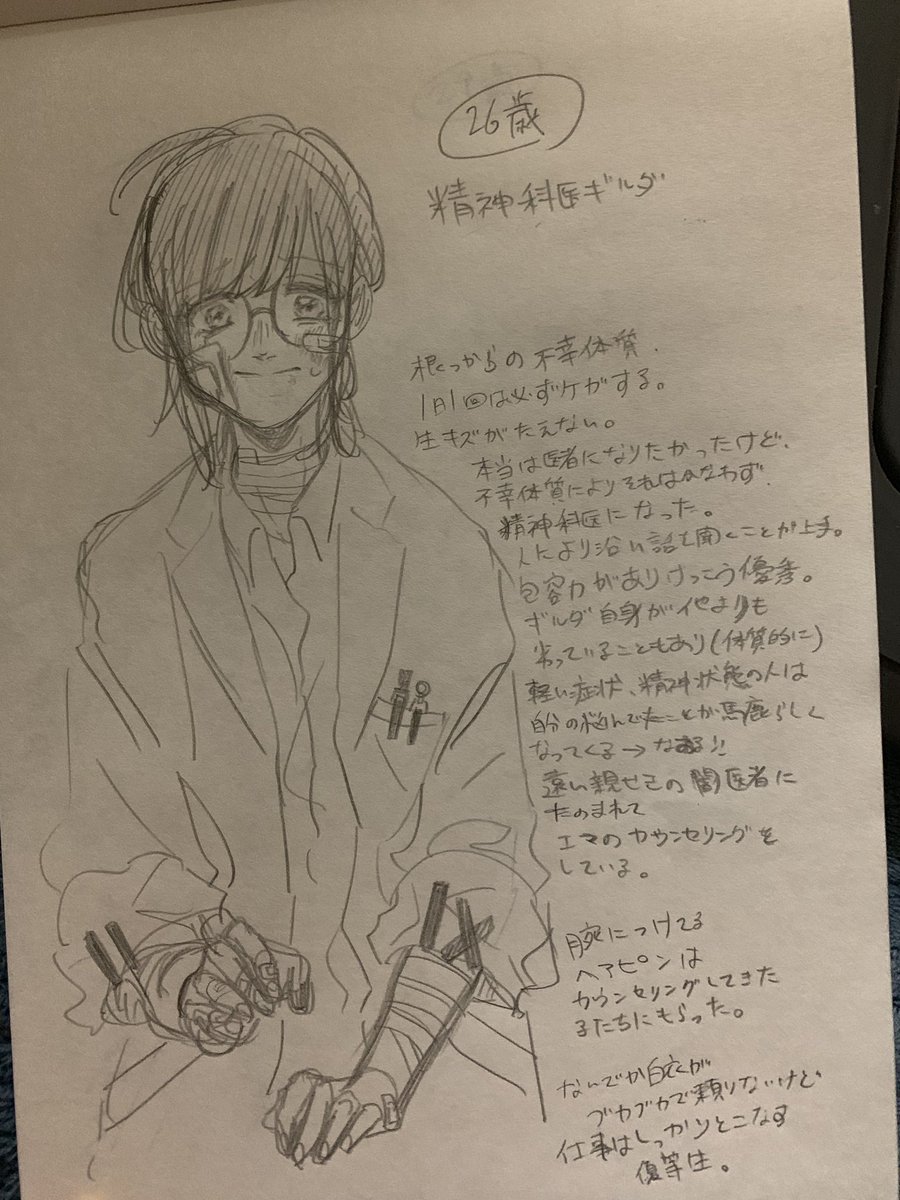 26歳
精神科医ギルダ
根っからの不幸体質.
1日1回は必ずケガする。
生キズがたえない。
本当は医者になりたかったけど、
不幸体質によりそれはかなわず.
精神科医になった。
人により沿い話を聞くことが上手。
包容力がありけっこう優秀。
ギルダ自身が他よりも
劣っていることもあり(体質的に)
軽い症状、精神状態の人は
自分の悩んでたことが馬鹿らしく
なってくる→なおる!!
遠い親せきの闇医者に
たのまれて
エマのカウンセリングを
している。
腕につけてる
ヘアピンは
カウンセリングしてきた
子たちにもらった。
なんでか白衣が
ブカブカで頼りないけど
仕事はしっかりとこなす
優等生。